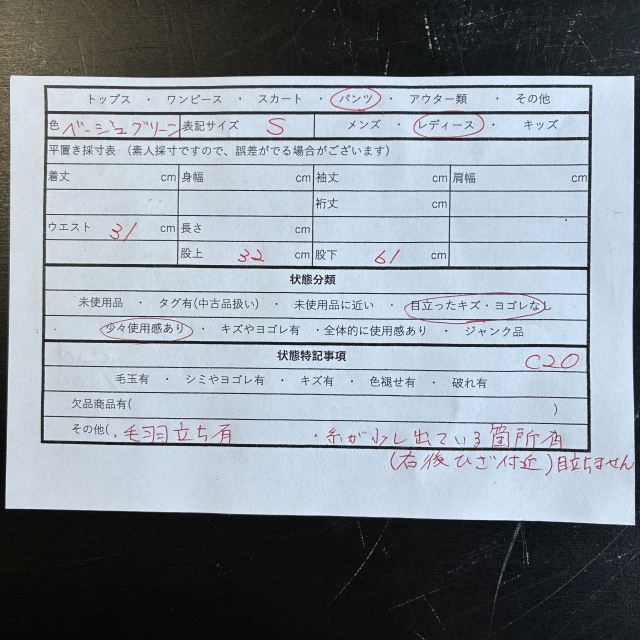 トップス ・ ワンピース ・ スカート ・ パンツ ・ アウター類 ・ その他
色 ベージュグリーン 表記サイズ S メンズ ・ レディース ・ キッズ
平置き採寸表（素人採寸ですので、誤差がでる場合がございます）
着丈 cm 身幅 cm 袖丈 cm 肩幅 cm
裄丈 cm
ウエスト 31 cm 長さ cm
股上 32 cm 股下 61 cm
状態分類
未使用品 ・ タグ有(中古品扱い) ・ 未使用品に近い ・ 目立ったキズ・ヨゴレなし
少々使用感あり ・ キズやヨゴレ有 ・全体的に使用感あり ・ ジャンク品
状態特記事項 C20
毛玉有 ・ シミやヨゴレ有 ・ キズ有 ・ 色褪せ有 ・ 破れ有
欠品商品有( )
その他(・毛羽立ち有 ・糸が少し出ている箇所有
(右後ひざ付近)目立ちません